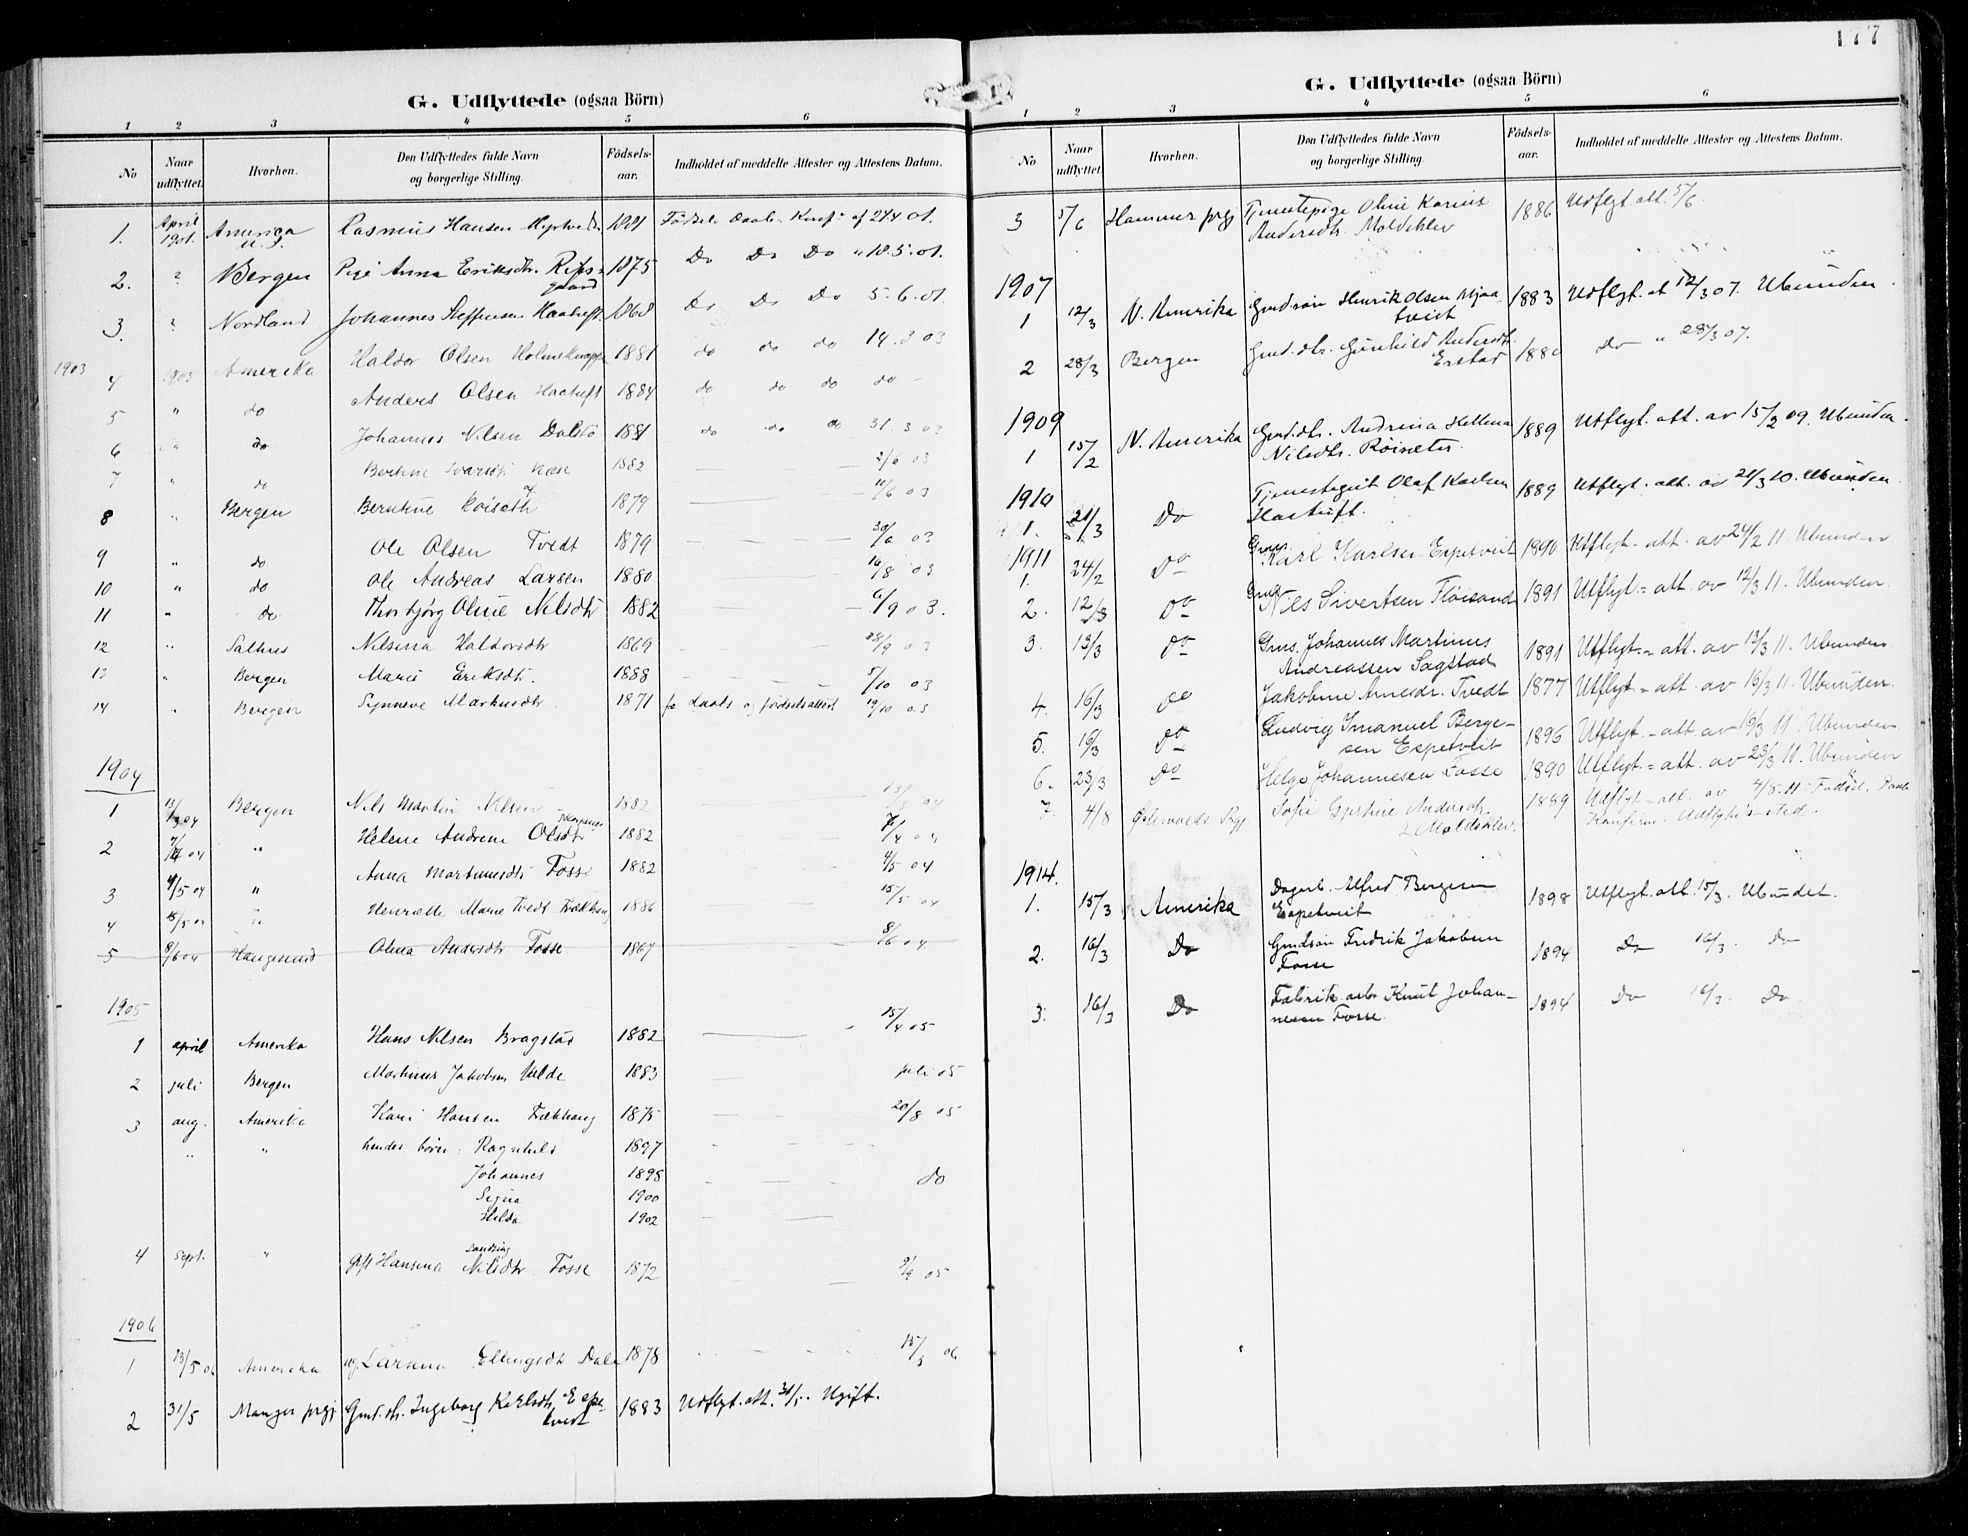 177
G. Udflyttede (ogsaa Börn)
1 2 3 4 5 6
No Naar udflyttet. Hvorhen. Den Udflyttedes fulde Navn og borgerlige Stilling. Födselsaar. Indholdet af meddelte Attester og Attestens Datum.
1. April 1901. America U.S. Rasmus Hansen Födsels Daab Konf. af 27/4 01.
2. " Bergen Pige Anna Eriksdtr. Refsgaard 1875 Do Do Do " 18.5.01.
3. " Nordland Johannes Steffensen Haatuft 1868 Do Do Do 5.6.01.
1903 4 1903 Amerika Haldor Olsen Holmeknappe 1881 do do do 14.3 03
5 " do Anders Olsen Haatuft 1884 do do do do -
6 " do Johannes Nilsen Dalstö 1881 do do do 31.3 03
7 " do Berthine Ivarsdtr 1882 2/6 03
8 " Bergen Berntine 1879 11/6 03
9 " do Ole Olsen Tvedt 1879 30/6 03
10 " do Ole Andreas Larsen 1880 16/8 03
11 " do Thorbjörg Oline Nilsdtr 1882 6/9 03.
12 " Salhus Nilsina Haldorsdtr 1869 28/9 03
13 " Bergen Marie Eriksdtr. 1888 5/10 03
14 " Bergen Synneve Markusdtr 1871 fr daabs og födselsattest 19/10 03
1904
1 13/3 04 Bergen Nils Martin Nilsen 1882 13/3 04
2 7/4 04 " Helene Andrine Olsdtr 1882 7/4 04
3 4/5 04 " Anna Martinusdtr Fosse 1882 4/5 04
4 15/5 04 " Henriette Marie Tvedt 1886 15/5 04
5 8/6 04 Haugesund Olina Andersdtr Fosse 1867 8/6 04
1905
1 april Amerika Hans Nilsen Bragstad 1882 15/4 05
2 juli Bergen Martinus Jakobsen Velde 1883 juli 05
3 aug. Amerika Kari Hansen 1875 20/8 05
" " hendes börn: Ragnhild 1897
Johannes 1895 do
Signa 1900
Hilda 1902
4 Sept. " gift Hansena Nilsdtr Fosse 1872 9/9 05
1906
1 13/5 06 Amerika ug. Larsina Ellingsdtr Dale 1878 06
2 31/5 Manger prgj Gmd.dtr. Ingeborg Karlsdtr. Espetvedt 1883 Udflyt. att. Ugift.
G. Udflyttede (ogsaa Börn)
1 2 3 4 5 6
No Naar udflyttet. Hvorhen. Den Udflyttedes fulde Navn og borgerlige Stilling. Födselsaar. Indholdet af meddelte Attester og Attestens Datum.
3 5/6 Hammer prgj Tjenestepige Oline Karine Andersdtr. Moldeklev 1886 Udflyt att. 5/6.
1907
1 12/3 N. Amerika Gmdsön Henrik Olsen Mjaatveit 1883 Udflyt. at 12/3 07. Ubunden
2 28/3 Bergen Gmd.dtr. Gunhild Andersdt. Erstad Do " 28/3 07.
1909
1 15/2 N. Amerika Gmd.dtr. Andrina Hellena Nilsdtr. 1889 Utflyt. att. av 15/2 09. Ubunden.
1910
1. 21/3 Do Tjenestegut Olaf Karlsen Haatuft. 1889 Utflyt. att. av 21/3 10. Ubunden
1911
1. 24/2 Do Gms. Karl Karlsen Espetveit 1890 Utflyt - att. av 24/2 11. Ubunden
2. 12/3 Do Gms. Nils Sivertsen Flöisand 1891 Utflyt. - att. av 12/3 11. Ubunden.
3. 13/3 Do Gms. Johannes Martinus Andreassen Sagstad 1891 Utflyt - att. av 13/3 11. Ubunden
4. 16/3 Do Jakobine Arnesdr. Tvedt 1877 Utflyt - att. av 16/3 11. Ubunden.
5. 16/3 Do Ludvig Imanuel Bergesen Espetveit 1896 Utflyt. - att. av 16/3 11. Ubunden
6. 23/3 Do Helge Johannesen Fosse 1890 Utflyt. - att. av 23/3 11. Ubunden
7. 4/8 Prgj. Sofie Gjertine Andersdtr. Moldeklev. 1889 Udflyt - att. av 4/8.11: Födsel, Daab
1914.
1. 15/3 Amerika Dagarb. Alfred Bergesen Espetveit 1898 Utflyt. att. 15/3. Ubundet.
2. 16/3 Do Gmdsön Fredrik Jakobsen Fosse 1894 Do 16/3. Do
3. 16/3 Do Fabrik.arb. Knut Johannesen Fosse. 1894 Do 16/3. Do